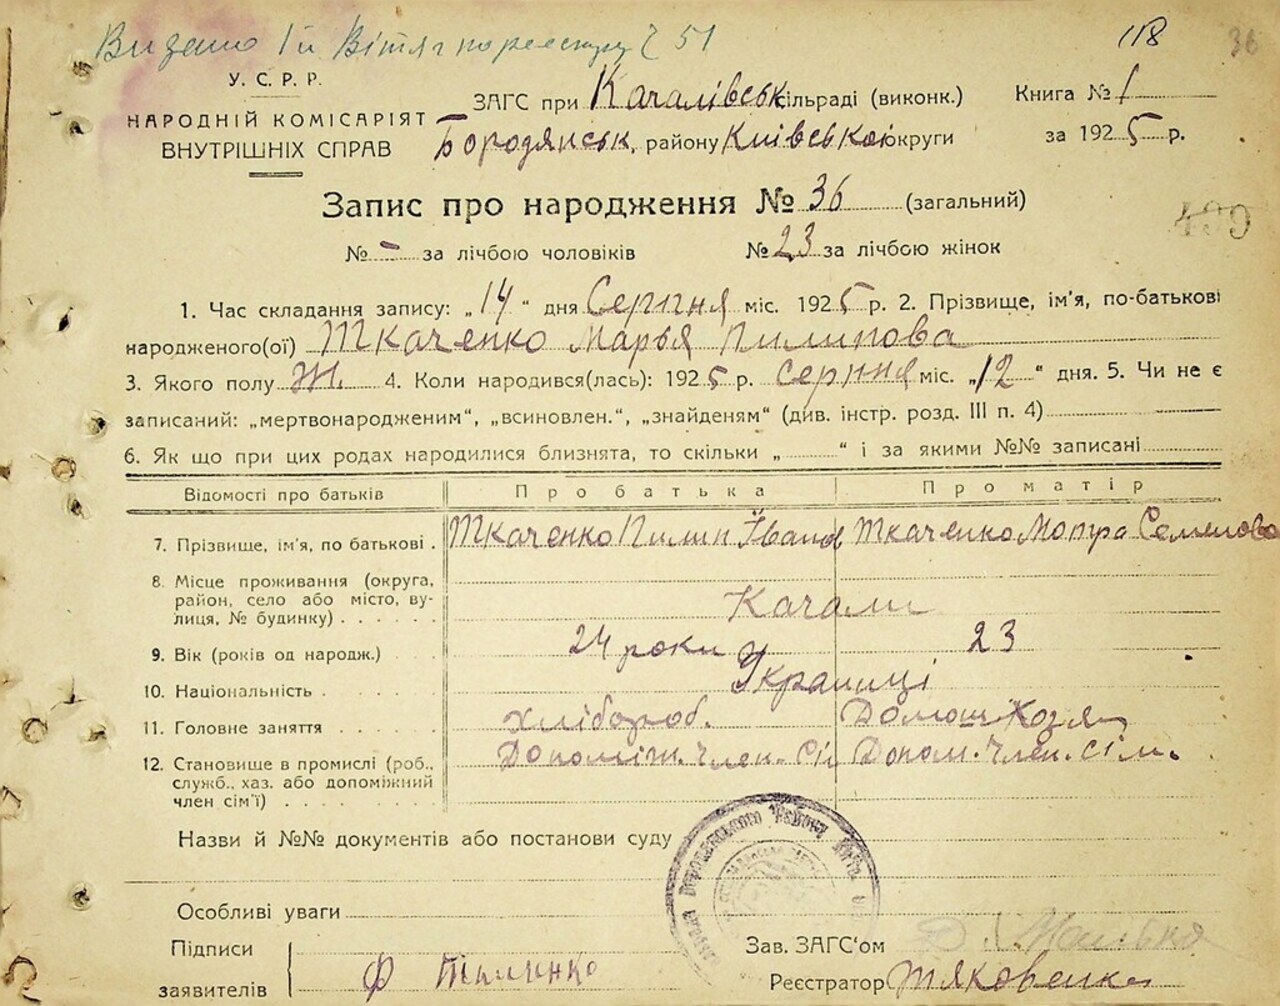 Видано 1й Вітяг по реєстру Ч 51
118
36
У. С. Р. Р.
НАРОДНІЙ КОМІСАРІЯТ
ВНУТРІШНІХ СПРАВ
ЗАГС при Качалівськ сільраді (виконк.)
Бородянськ, району Київської округи
Книга № 1
за 1925 р.
Запис про народження № 36 (загальний)
499
№ – за лічбою чоловіків № 23 за лічбою жінок
1. Час складання запису: „14“ дня Серпня міс. 1925 р. 2. Прізвище, ім'я, по-батькові
народженого(ої) Ткаченко Марья Пилипова
3. Якого полу Ж. 4. Коли народився(лась): 1925 р. Серпня міс. „12“ дня. 5. Чи не є
записаний: „мертвонародженим“, „всиновлен.“, „знайденям“ (див. інстр. розд. III п. 4)
6. Як що при цих родах народилися близнята, то скільки „ “ і за якими №№ записані
Відомості про батьків Про батька Про матір
7. Прізвище, ім'я, по батькові . Ткаченко Пилип Іванов Ткаченко Мотра Семенова
8. Місце проживання (округа,
район, село або місто, ву-
лиця, № будинку) . . . . . . Качали
9. Вік (років од народж.) 24 роки 23
10. Національність . Українці
11. Головне заняття хлібороб. Домаш Хозя
12. Становище в промислі (роб., Допоміж. Член. Сім Допом. Член. Сім.
служб., хаз. або допоміжний
член сім'ї)
Назви й №№ документів або постанови суду
Особливі уваги
Підписи
заявителів Ф
Зав. ЗАГС'ом
Реєстратор Яковенко